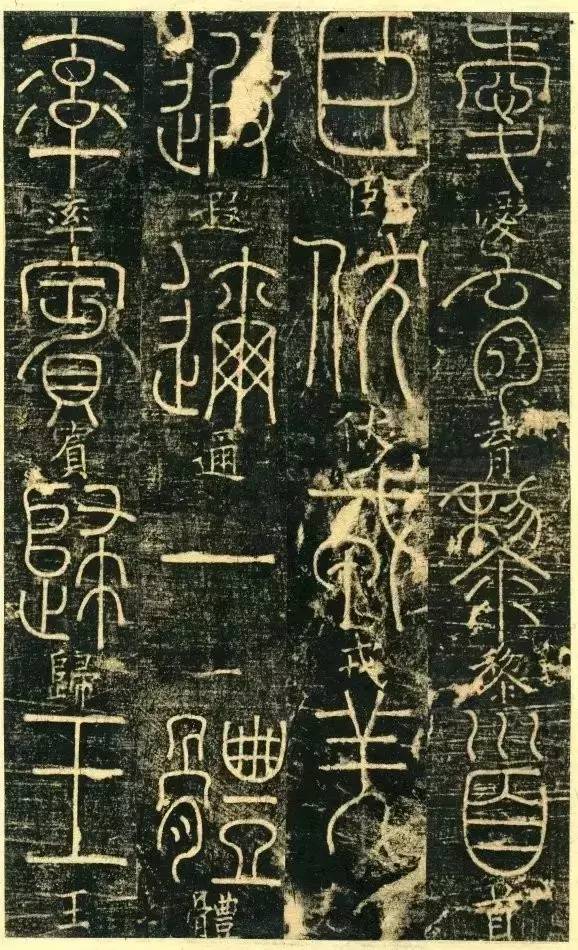 愛愛育育黎黎首首
臣臣伏伏戎戎羌
遐遐邇邇一一體體
率率賓賓歸歸王王